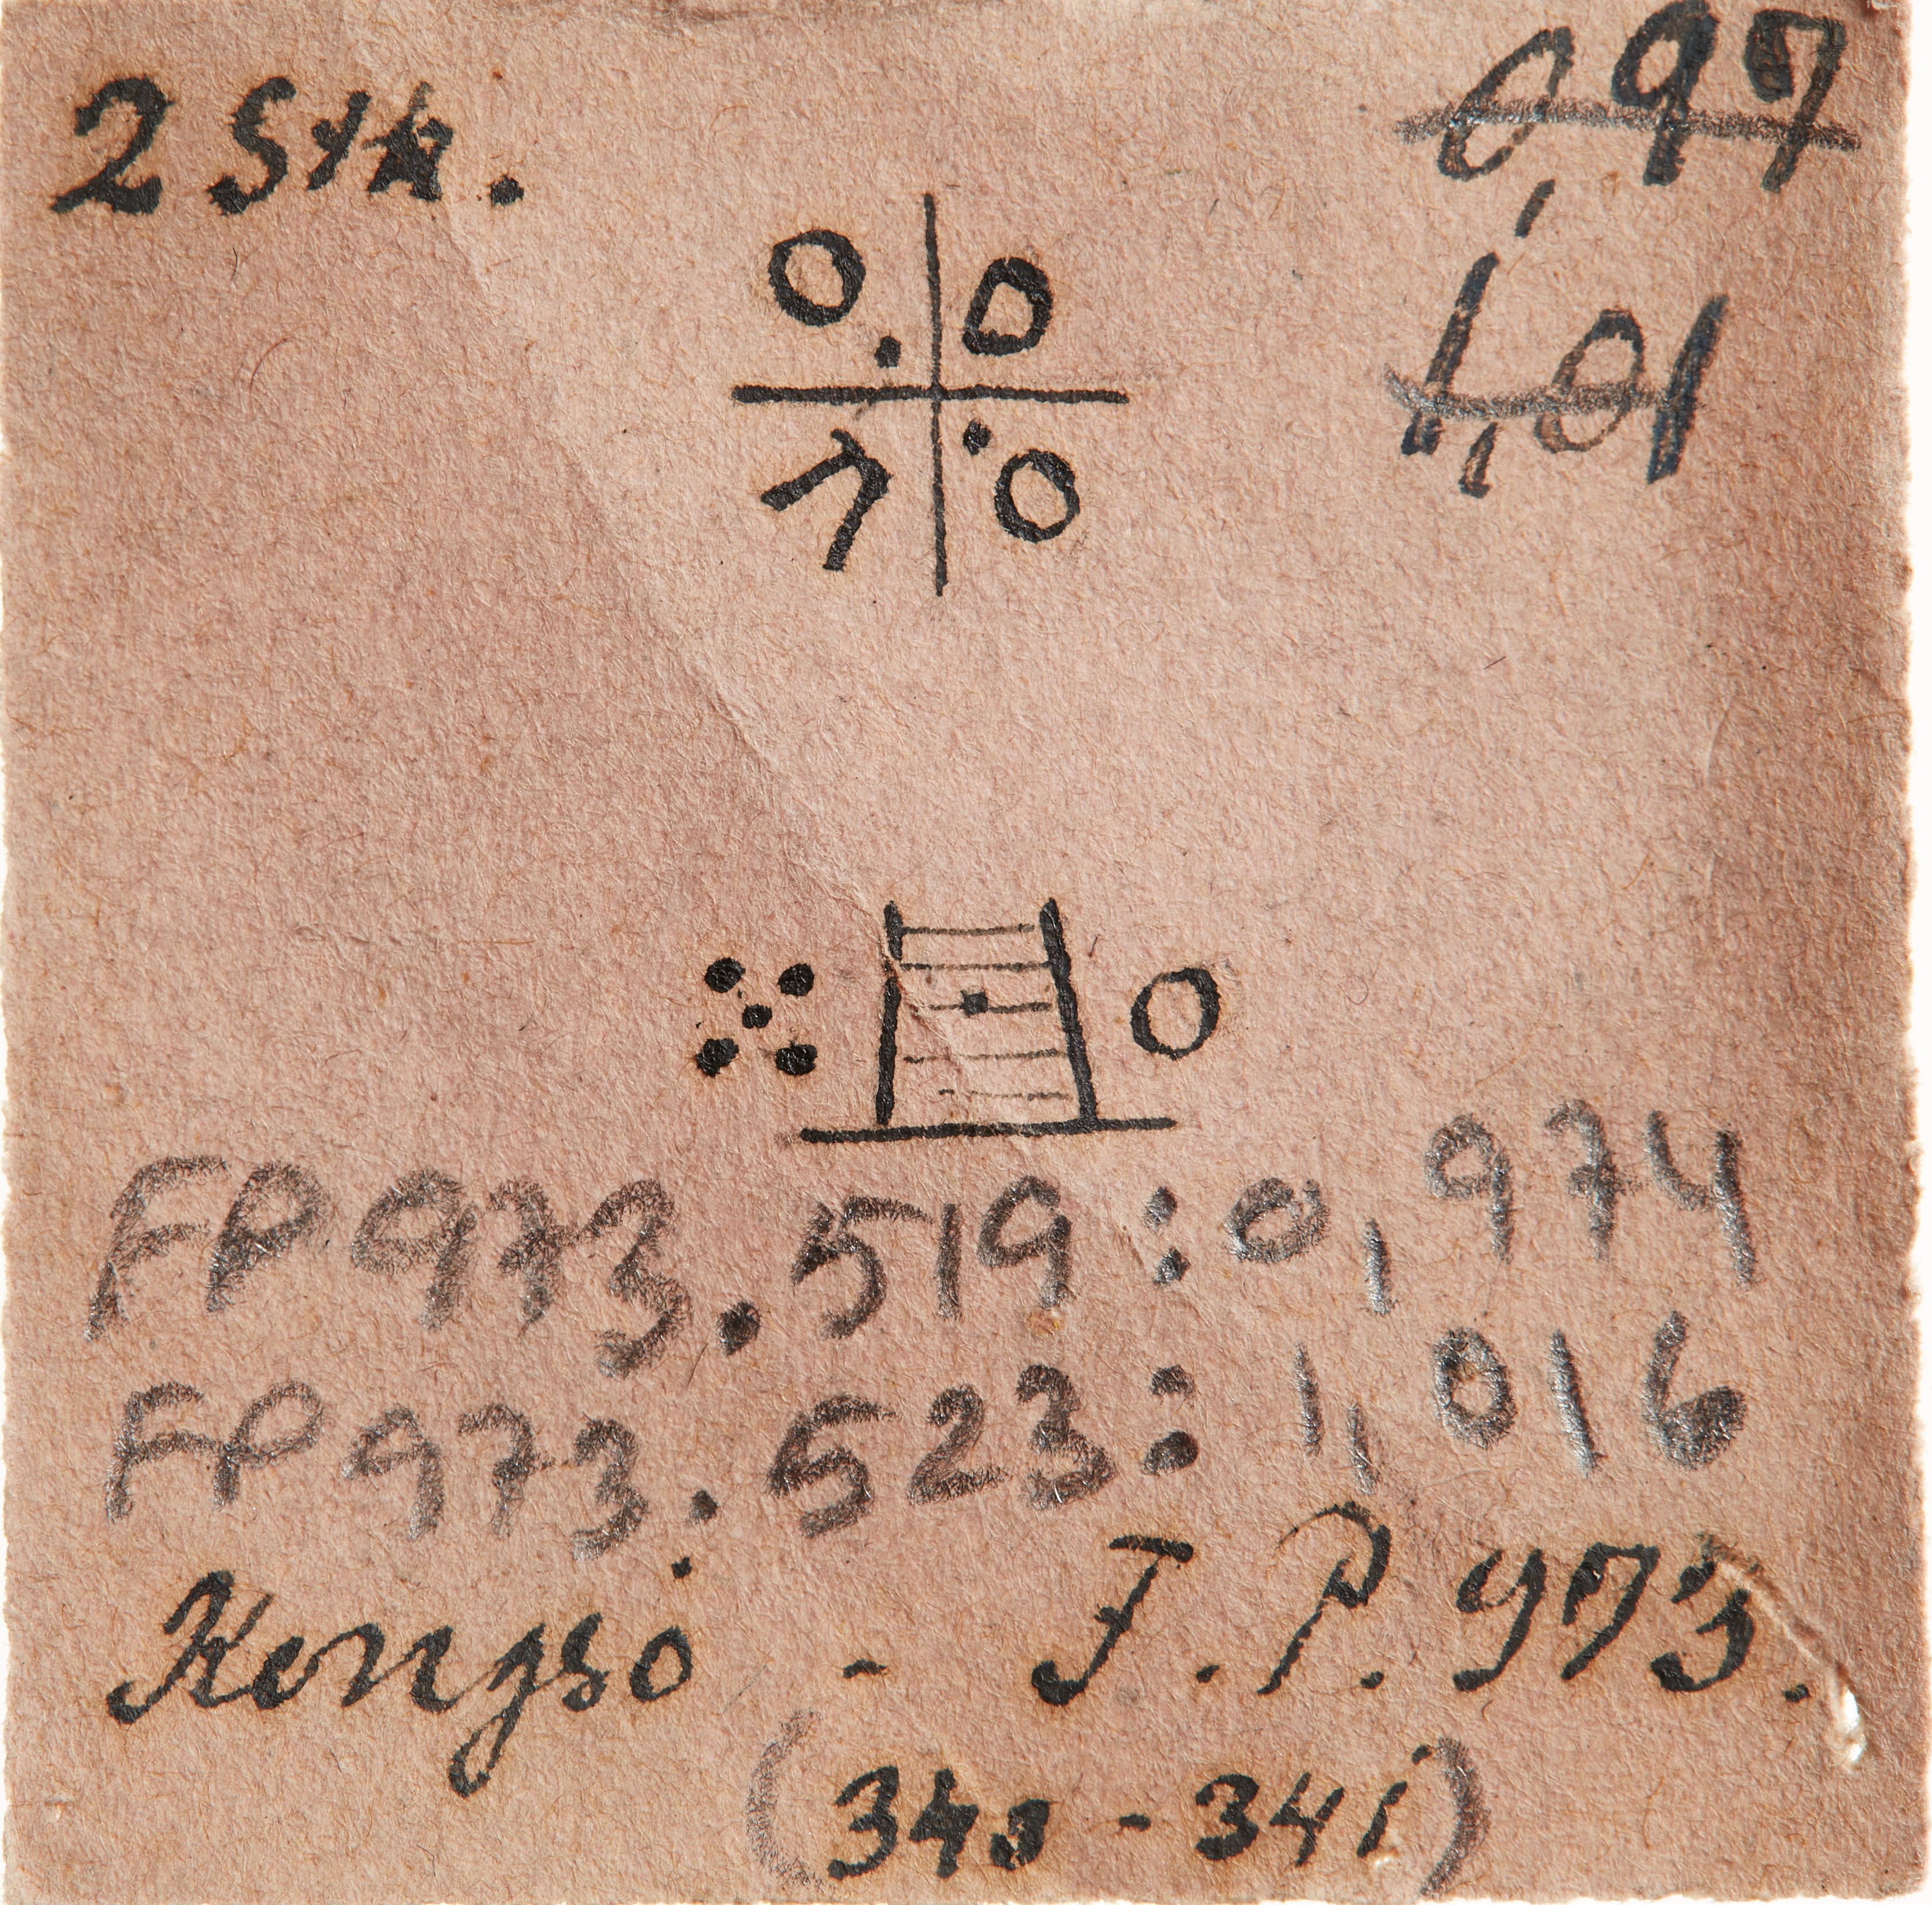 2 Stk.
0,97
1,01
FP 973.519 : 0,974
FP 973.523 : 1,016
Kongsö - F. P. 973.
(340 - 341)